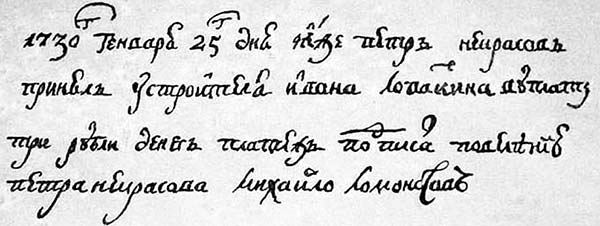 1730г генваря 25г дня я же петръ некрасовъ
принелъ у строителя ивана лопаткина в уплату
три рубли денегъ платежъ подписа повелѣние
петра некрасова михайло ломоносовъ